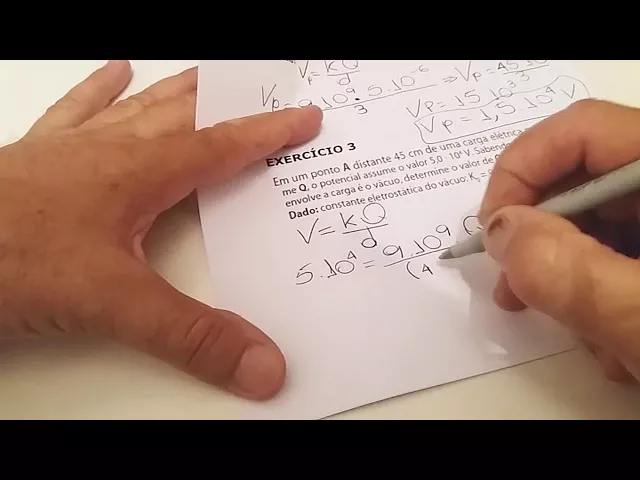 Vp = kQ/d
Vp = 9.10⁹.5.10⁻⁶/3 ⇒ Vp = 45.10³/3
Vp = 15.10³
Vp = 1,5.10⁴ V
EXERCÍCIO 3
Em um ponto A distante 45 cm de uma carga elétrica
me Q, o potencial assume o valor 5,0 · 10⁴ V. Sabendo
envolve a carga é o vácuo, determine o valor de
Dado: constante eletrostática do vácuo: K
V = kQ/d
5.10⁴ = 9.10⁹ (/(4